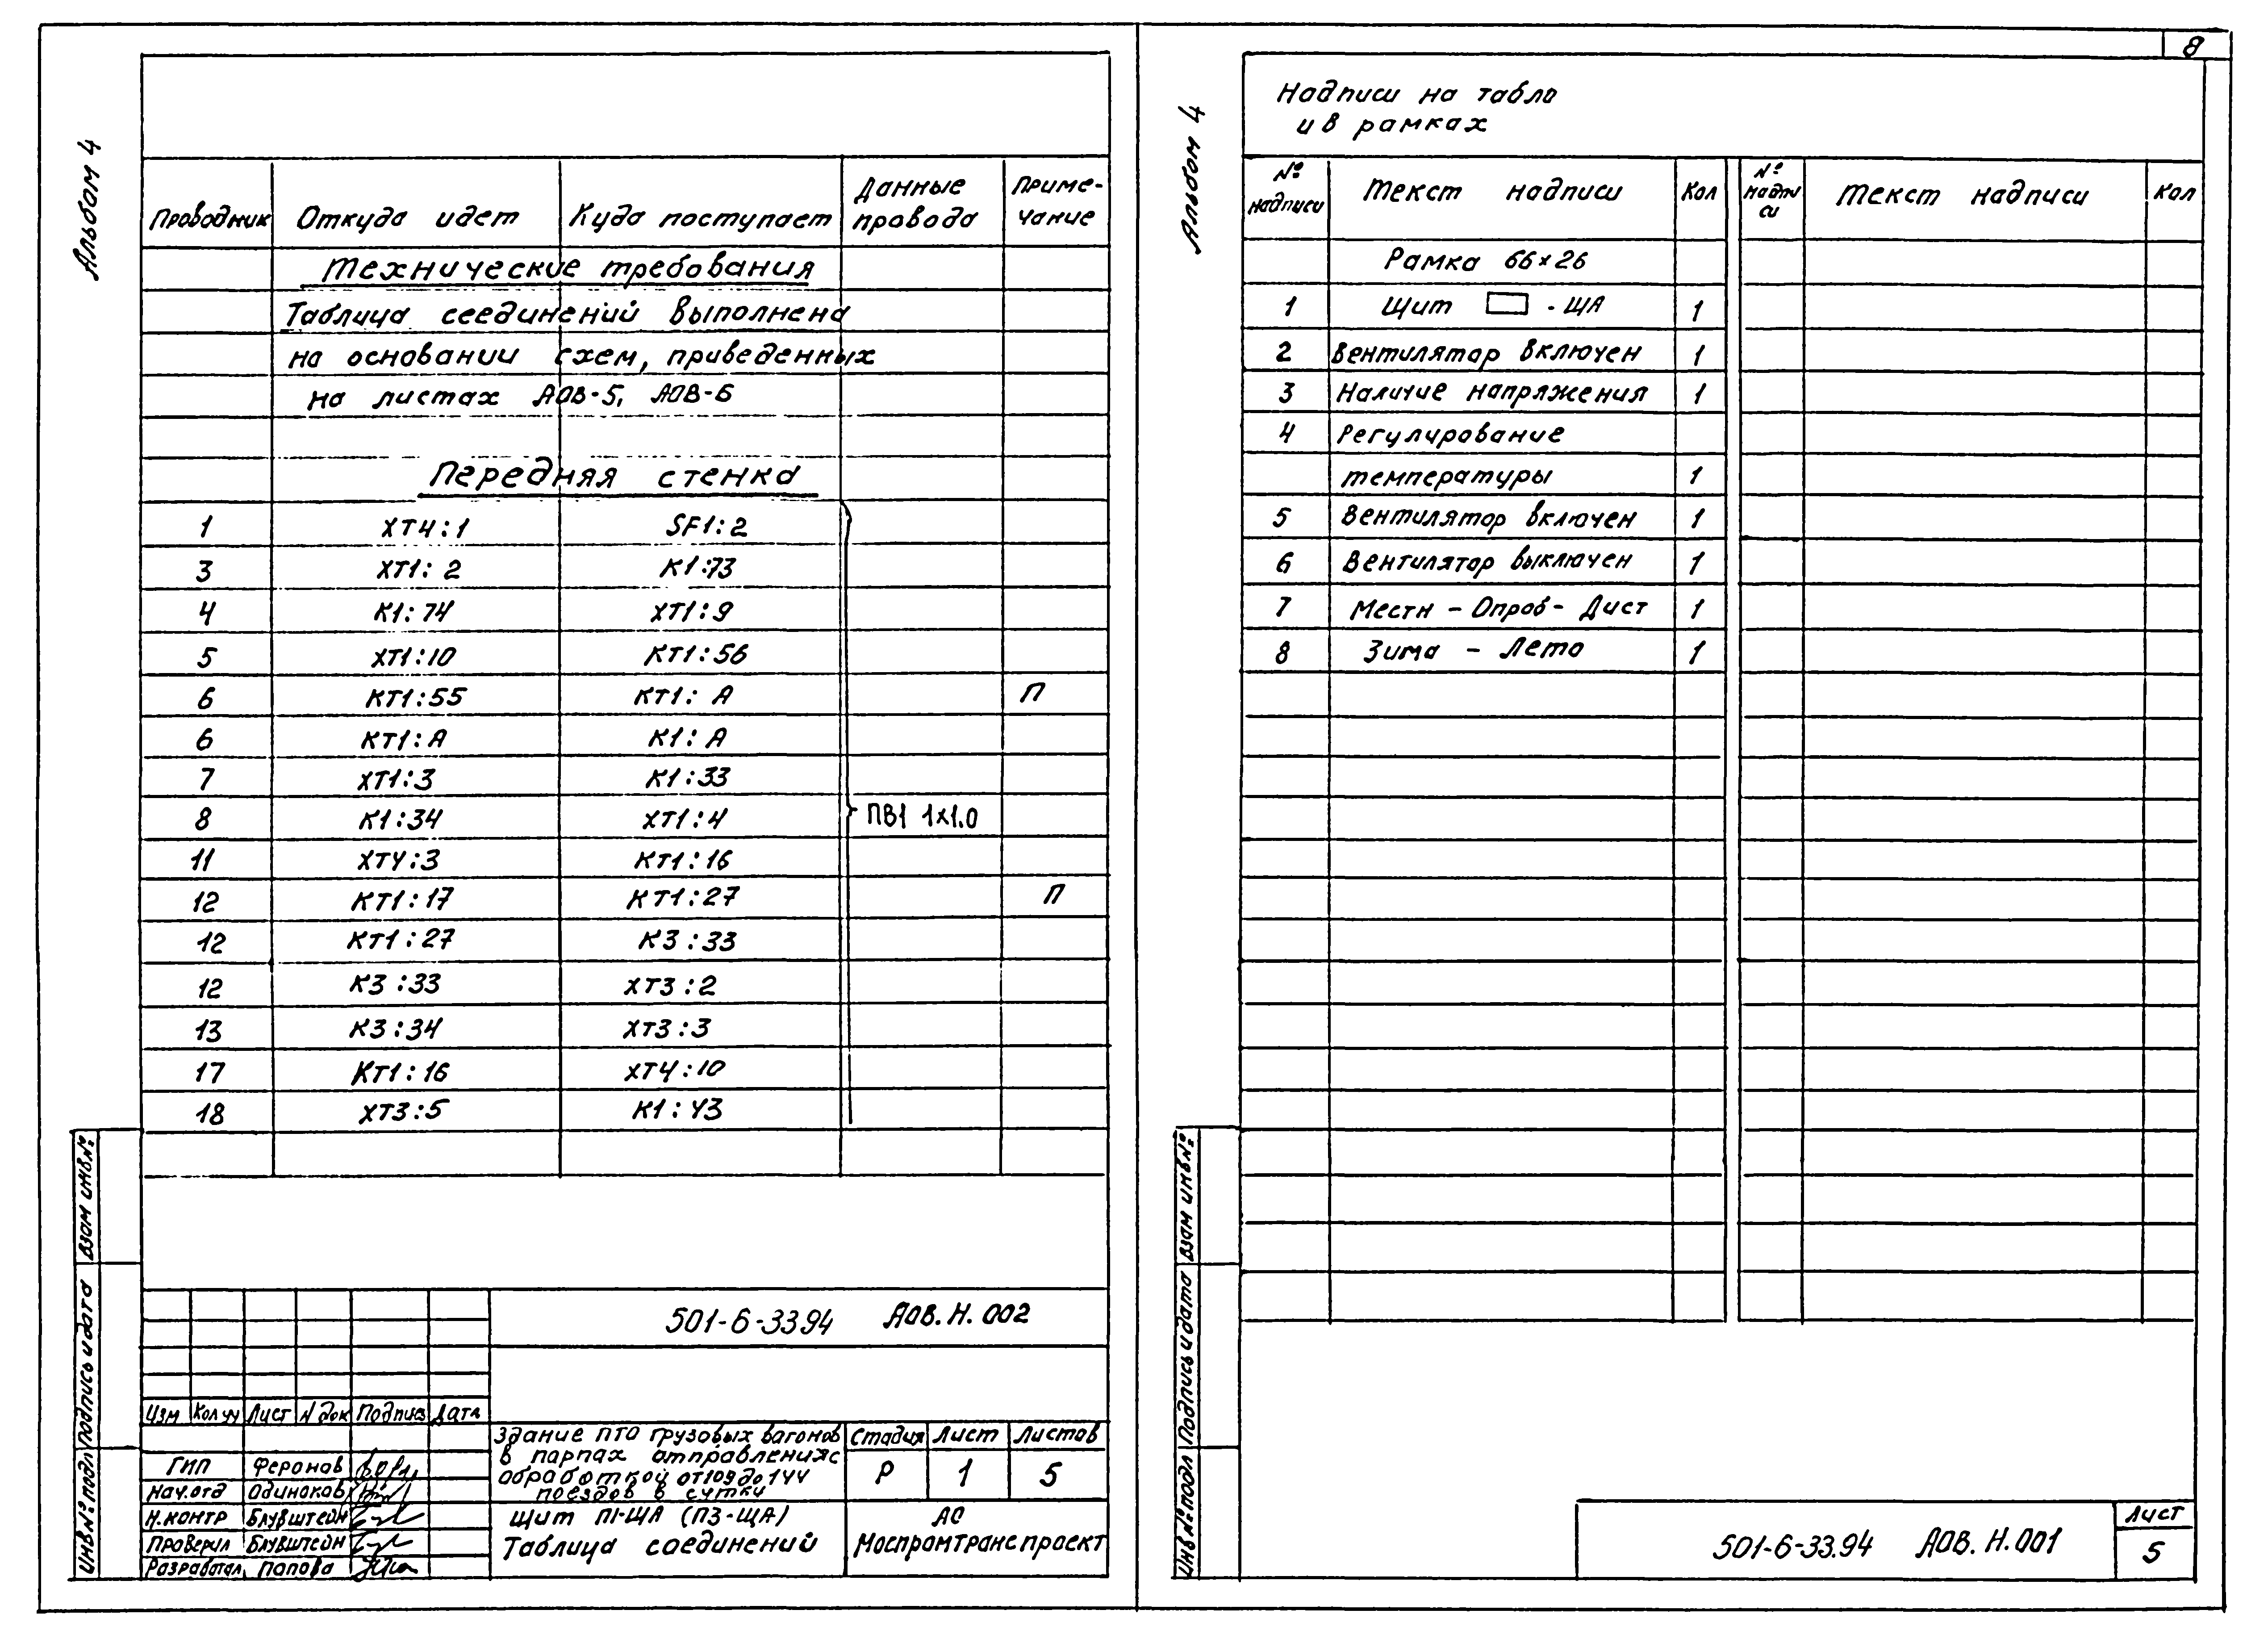 8
Альбом 4
Проводник Откуда идет Куда поступает Данные провода Приме-чание
Технические требования
Таблица соединений выполнена
на основании схем, приведенных
на листах АОВ-5, АОВ-6
Передняя стенка
1 XT4:1 SF1:2
3 XT1:2 K1:73
4 K1:74 XT1:9
5 XT1:10 KT1:56
6 KT1:55 KT1:A П
6 KT1:A K1:A
7 XT1:3 K1:33
8 K1:34 XT1:4 ПВ1 1х1.0
11 XT4:3 KT1:16
12 KT1:17 KT1:27 П
12 KT1:27 K3:33
12 K3:33 XT3:2
13 K3:34 XT3:3
17 KT1:16 XT4:10
18 XT3:5 K1:43
501-6-33.94 АОВ.Н.002
Изм Кол уч Лист N док Подпись Дата
ГИП Феронов
Нач.отд Одиноков
Н.контр Блувштейн
Проверил Блувштейн
Разработал Попова
Здание ПТО грузовых вагонов
в парках отправления с
обработкой от 109 до 144
поездов в сутки
Стадия Лист Листов
Р 1 5
Щит П1-ЩА (П3-ЩА)
Таблица соединений
АО
Моспромтранспроект
Инв № подл Подпись и дата Взам инв №
Альбом 4
Надписи на табло
и в рамках
№ надписи Текст надписи Кол № надписи Текст надписи Кол
Рамка 66×26
1 Щит - ЩА 1
2 Вентилятор включен 1
3 Наличие напряжения 1
4 Регулирование
температуры 1
5 Вентилятор включен 1
6 Вентилятор выключен 1
7 Местн - Опроб - Дист 1
8 Зима - Лето 1
Инв № подл Подпись и дата Взам инв №
501-6-33.94 АОВ.Н.001
Лист
5